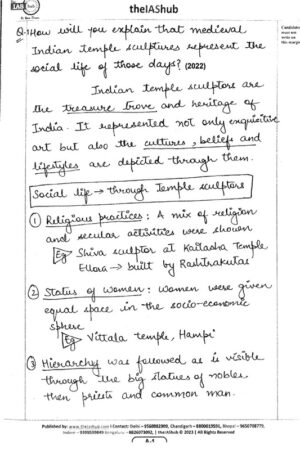 IAS hub
theIAShub
Candidates must not write on this margin
Q.1 How will you explain that medieval
Indian temple sculptures represent the
social life of those days? (2022)
Indian temple sculptors are
the treasure trove and heritage of
India. It represented not only exquisitive
art but also the cultures, beliefs and
lifestyles are depicted through them.
Social life → through Temple sculptors
① Religious practices: A mix of religion
and secular activities were shown
Eg Shiva sculptor at Kailasha Temple
Ellora → built by Rashtrakutas
② Status of women: Women were given
equal space in the socio-economic
sphere
Eg Vittala temple, Hampi
③ Hierarchy was followed as is visible
through the big statues of nobles
then priests and common man.
Published by: www.theiashub.com | Contact: Delhi – 9560982909, Chandigarh – 8800019591, Bhopal – 9650708779,
| theIAShub © 2023 | All Rights Reserved
A-1